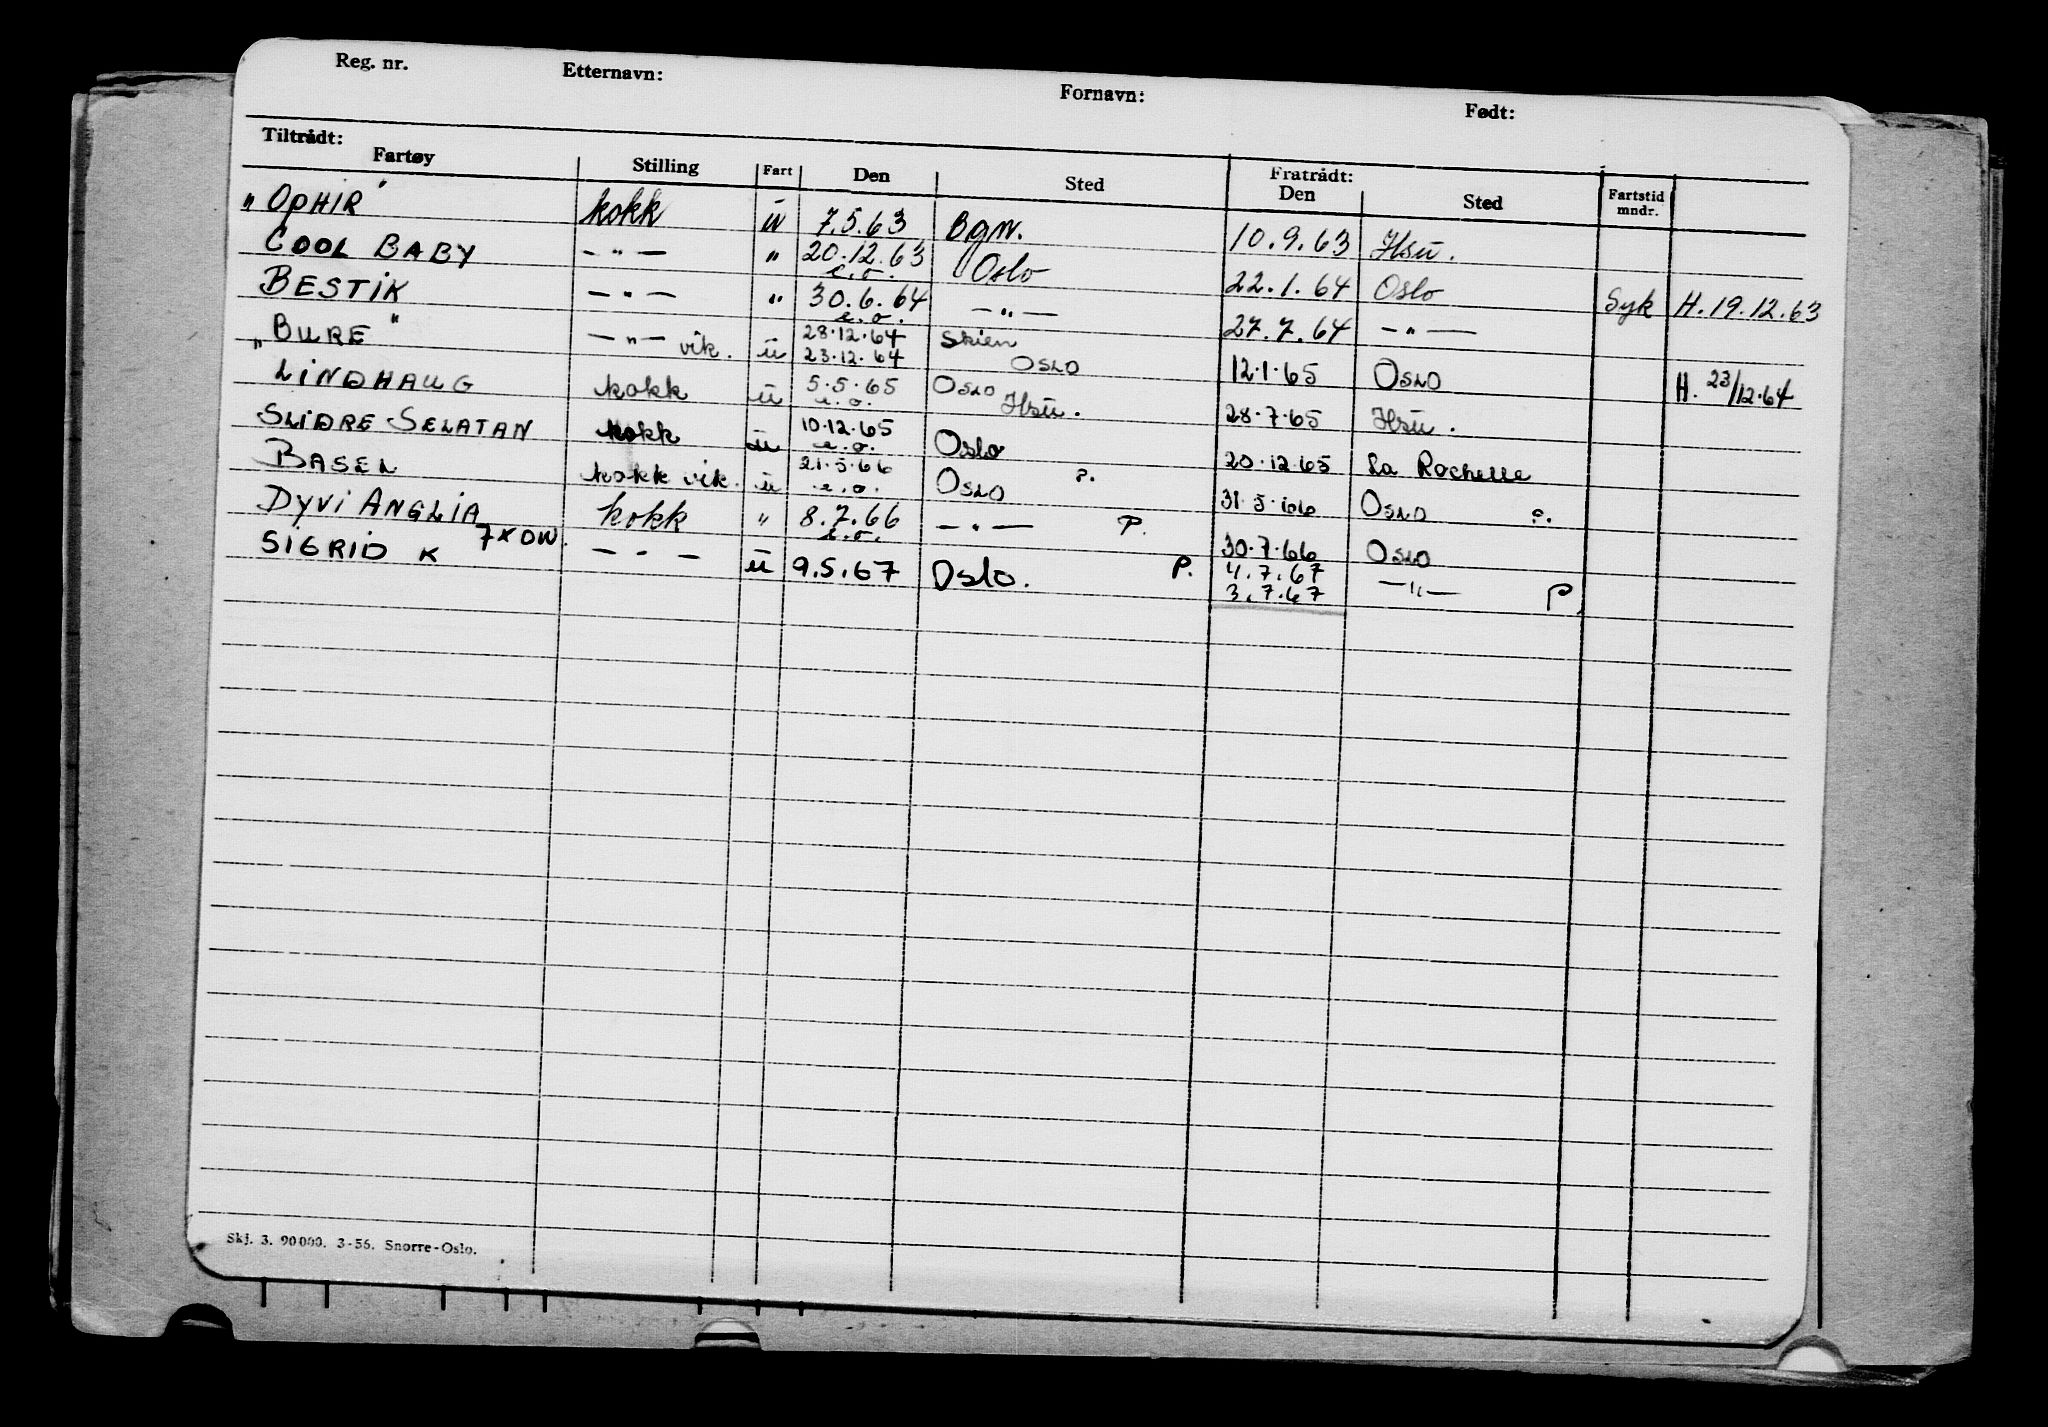 Reg. nr. Etternavn: Fornavn: Født:
Tiltrådt: Fratrådt:
Fartøy Stilling Fart Den Sted Den Sted Fartstid mndr.
"OPHIR" kokk ü 7.5.63 Bgn. 10.9.63 Hsü.
COOL BABY — " — " 20.12.63 e.o. Oslo 22.1.64 Oslo Syk H. 19.12.63
BESTIK — " — " 30.6.64 e.o. — " — 27.7.64 — " —
"BURE" — " — vik. ü 28.12.64 Skien
23.12.64 OSLO 12.1.65 OSLO H. 23/12.64
LINDHAUG kokk ü 5.5.65 e.o. OSLO Hsü. 28.7.65 Hsü.
SLIDRE-SELATAN kokk ü 10.12.65 e.o. Oslo 20.12.65 La Rochelle
BASEL kokk vik. ü 21.5.66 e.o. OSLO P. 31.5.66 OSLO P.
DYVI ANGLIA kokk " 8.7.66 e.o. — " — P. 30.7.66 OSLO
SIGRID K 7XOW. — " — ü 9.5.67 Oslo. P. 4.7.67 — " — P.
3.7.67
Skj. 3. 90000. 3-56. Snorre-Oslo.